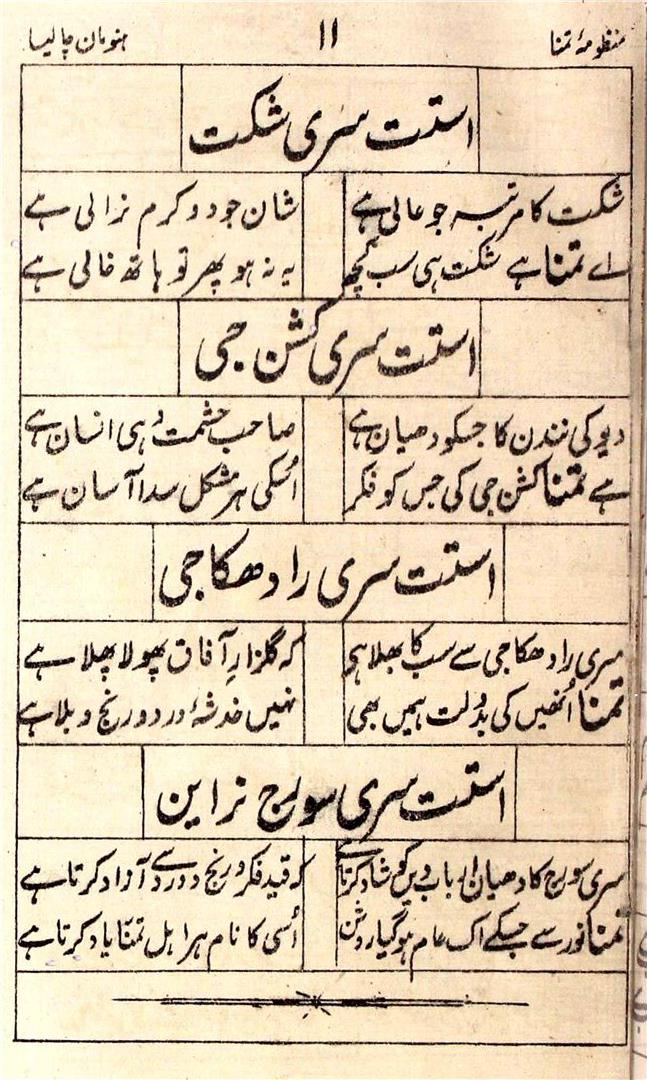 منظومۂ تمنا ۱۱ ہنومان چالیسا
استت سری شکت
شکت کا مرتبہ جو عالی ہے شان جود و کرم نرالی ہے
اے تمنا ہے شکت ہی سب کچھ یہ نہ ہو پھر تو ہاتھ خالی ہے
استت سری کشن جی
دیوکی نندن کا جسکو دھیان ہے صاحب حشمت وہی انسان ہے
ہے تمنا کشن جی کی جس کو فکر اُسکی ہر مشکل سدا آسان ہے
استت سری رادھکا جی
سری رادھکا جی سے سب کا بھلا ہے کہ گلزارِ آفاق پھولا پھلا ہے
تمنا اُنھیں کی بدولت ہمیں بھی نہیں خدشۂ درد و رنج و بلا ہے
استت سری سورج نراین
سری سورج کا دھیان ارباب دیں کو شاد کرتا ہے کہ قید فکر و رنج و درد سے آزاد کرتا ہے
تمنا نور سے جسکے اک عالم ہو گیا روشن اُسی کا نام ہر اہل تمنّا یاد کرتا ہے